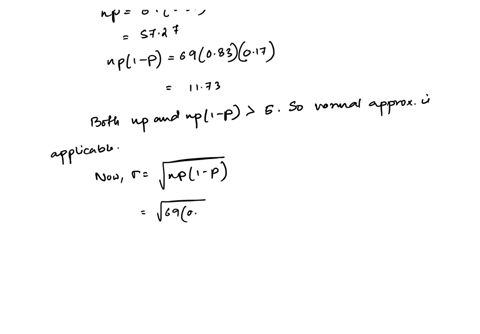 np =
= 57.27
np(1-p) = 69(0.83)(0.17)
= 11.73
Both np and np(1-p) > 5. So normal approx. is
applicable.
Now, σ = √np(1-p)
= √69(0.